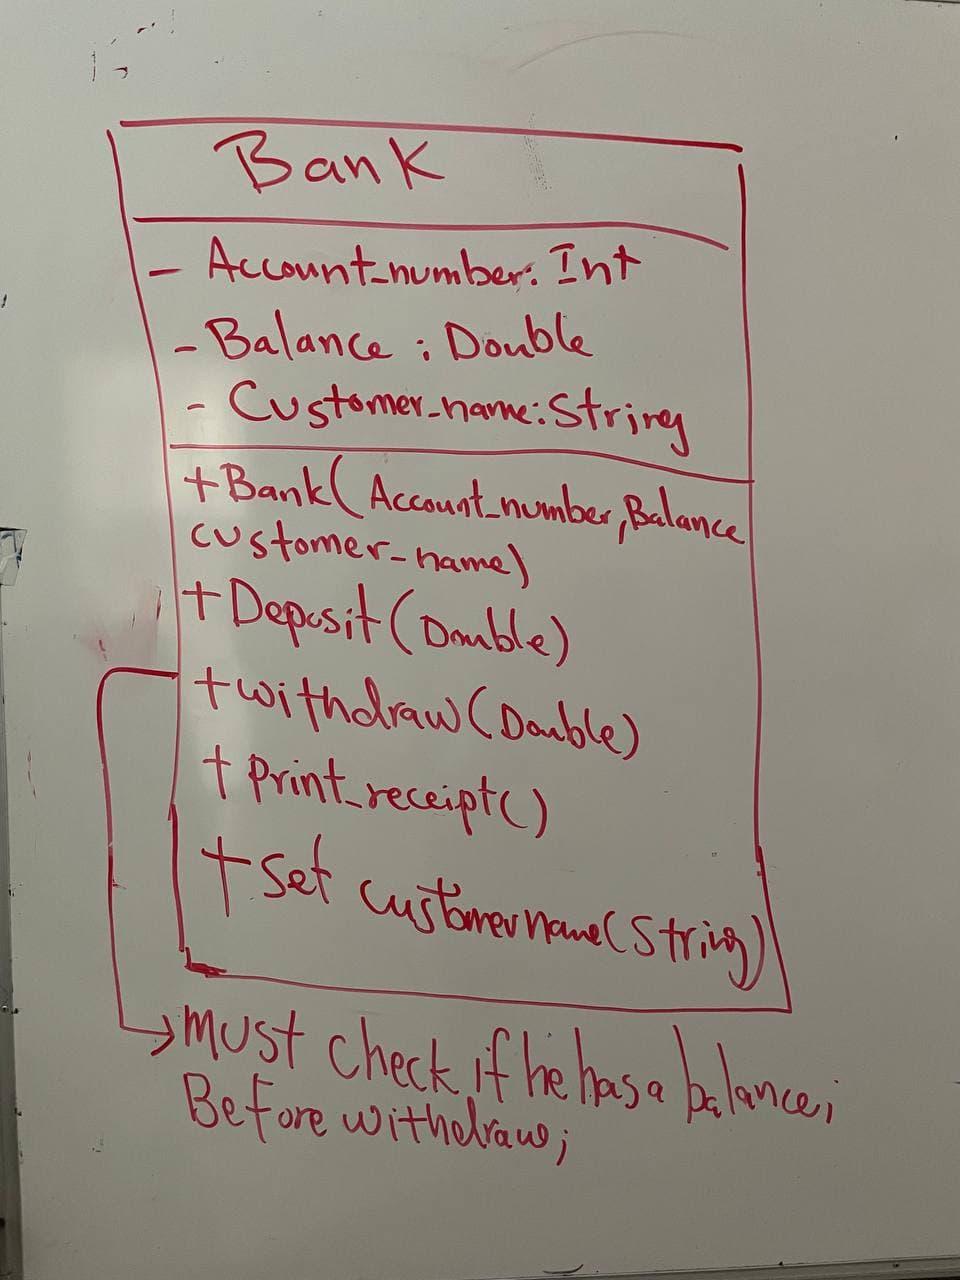 Bank
- Account_number: Int
- Balance : Double
- Customer_name: String
+ Bank( Account_number, Balance
customer_name)
+ Deposit (Double)
+ withdraw (Double)
+ Print_receipt()
+ set customername (String)
must check if he has a balance;
Before withdraw;